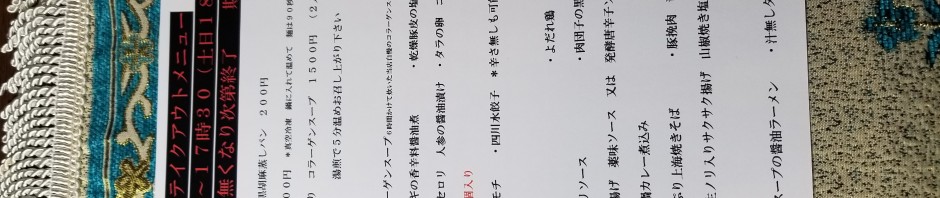 テイクアウトメニュー
～１７時３０（土日１８
無くなり次第終了
黒胡麻蒸しパン　２００円
００円　＊真空冷凍　鍋に入れて温めて　麺は９０秒
り　コラーゲンスープ　１５００円　（２人
湯煎で５分温めお召し上がり下さい
ーゲンスープ６時間かけて炊いた当店自慢のコラーゲンス
ギの香辛料醤油煮　・乾燥豚皮の塩
セロリ　人参の醤油漬け　・タラの卵
個入り
モチ　・四川水餃子　＊辛さ無しも可能
・よだれ鶏
リソース　・肉団子の黒
揚げ　薬味ソース　又は　発酵唐辛子ソ
鍋カレー煮込み
ぷり上海焼きそば　・豚挽肉
モノリ入りサクサク揚げ　山椒焼き塩
スープの醤油ラーメン　・汁無しタ